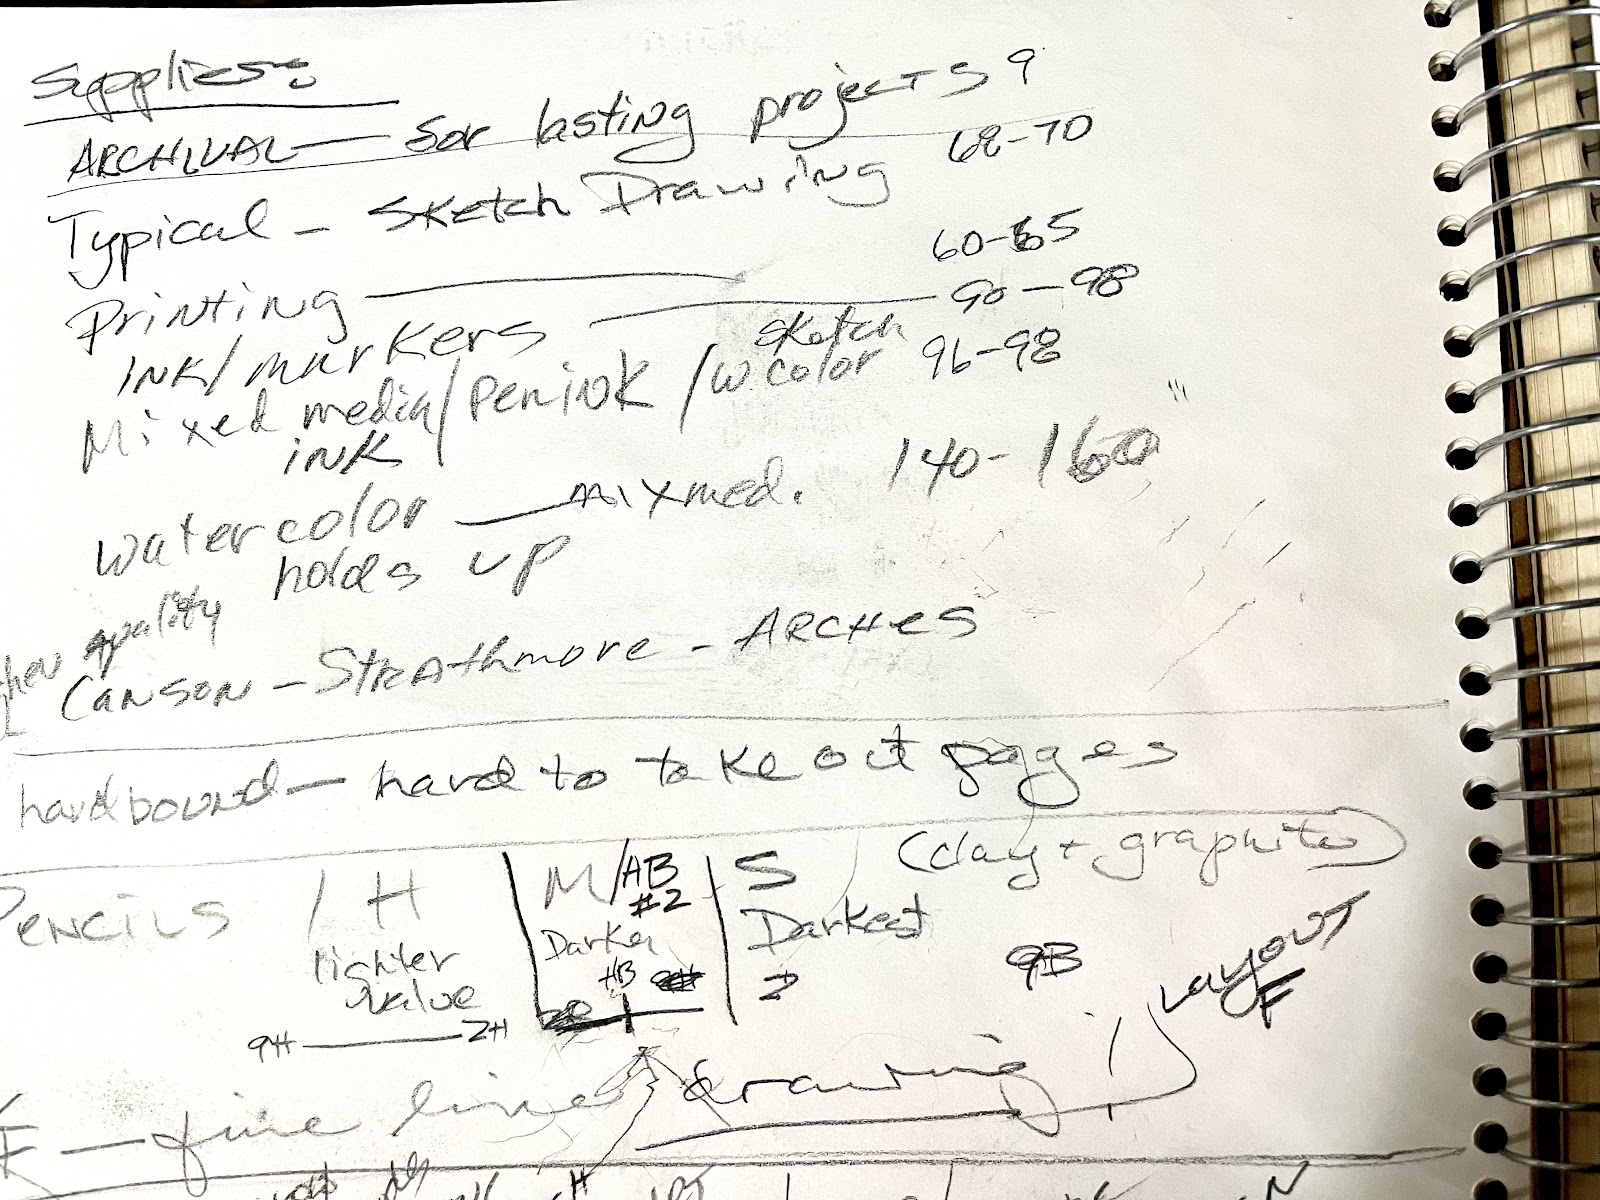 Supplies:
ARCHIVAL — for lasting projects 9
Typical - Sketch Drawing 68-70
Printing — 60-65
INK/markers — 90-98
Mixed media/Pen INK/W.color sketch 96-98
INK
watercolor — mixmed. 140-160 "
holds up
quality
Canson - Strathmore - ARCHES
hardbound - hard to take out pages
(clay + graphite)
PENCILS / H | M/AB | S
#2
lighter value | Darker | Darkest
HB
9H — 2H
2 9B
Layout
F
F — fine line drawing